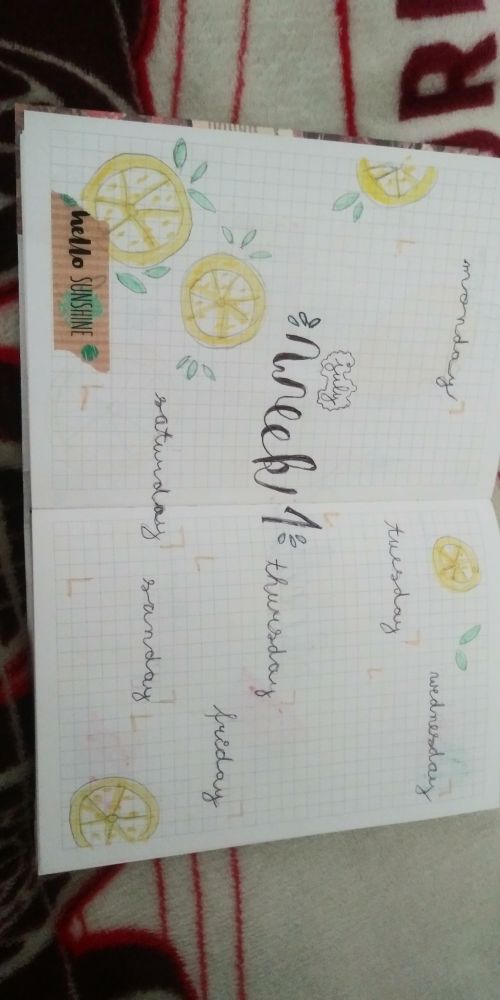 monday
tuesday
wednesday
july
week 1
thursday
friday
saturday
sanday
hello SUNSHINE